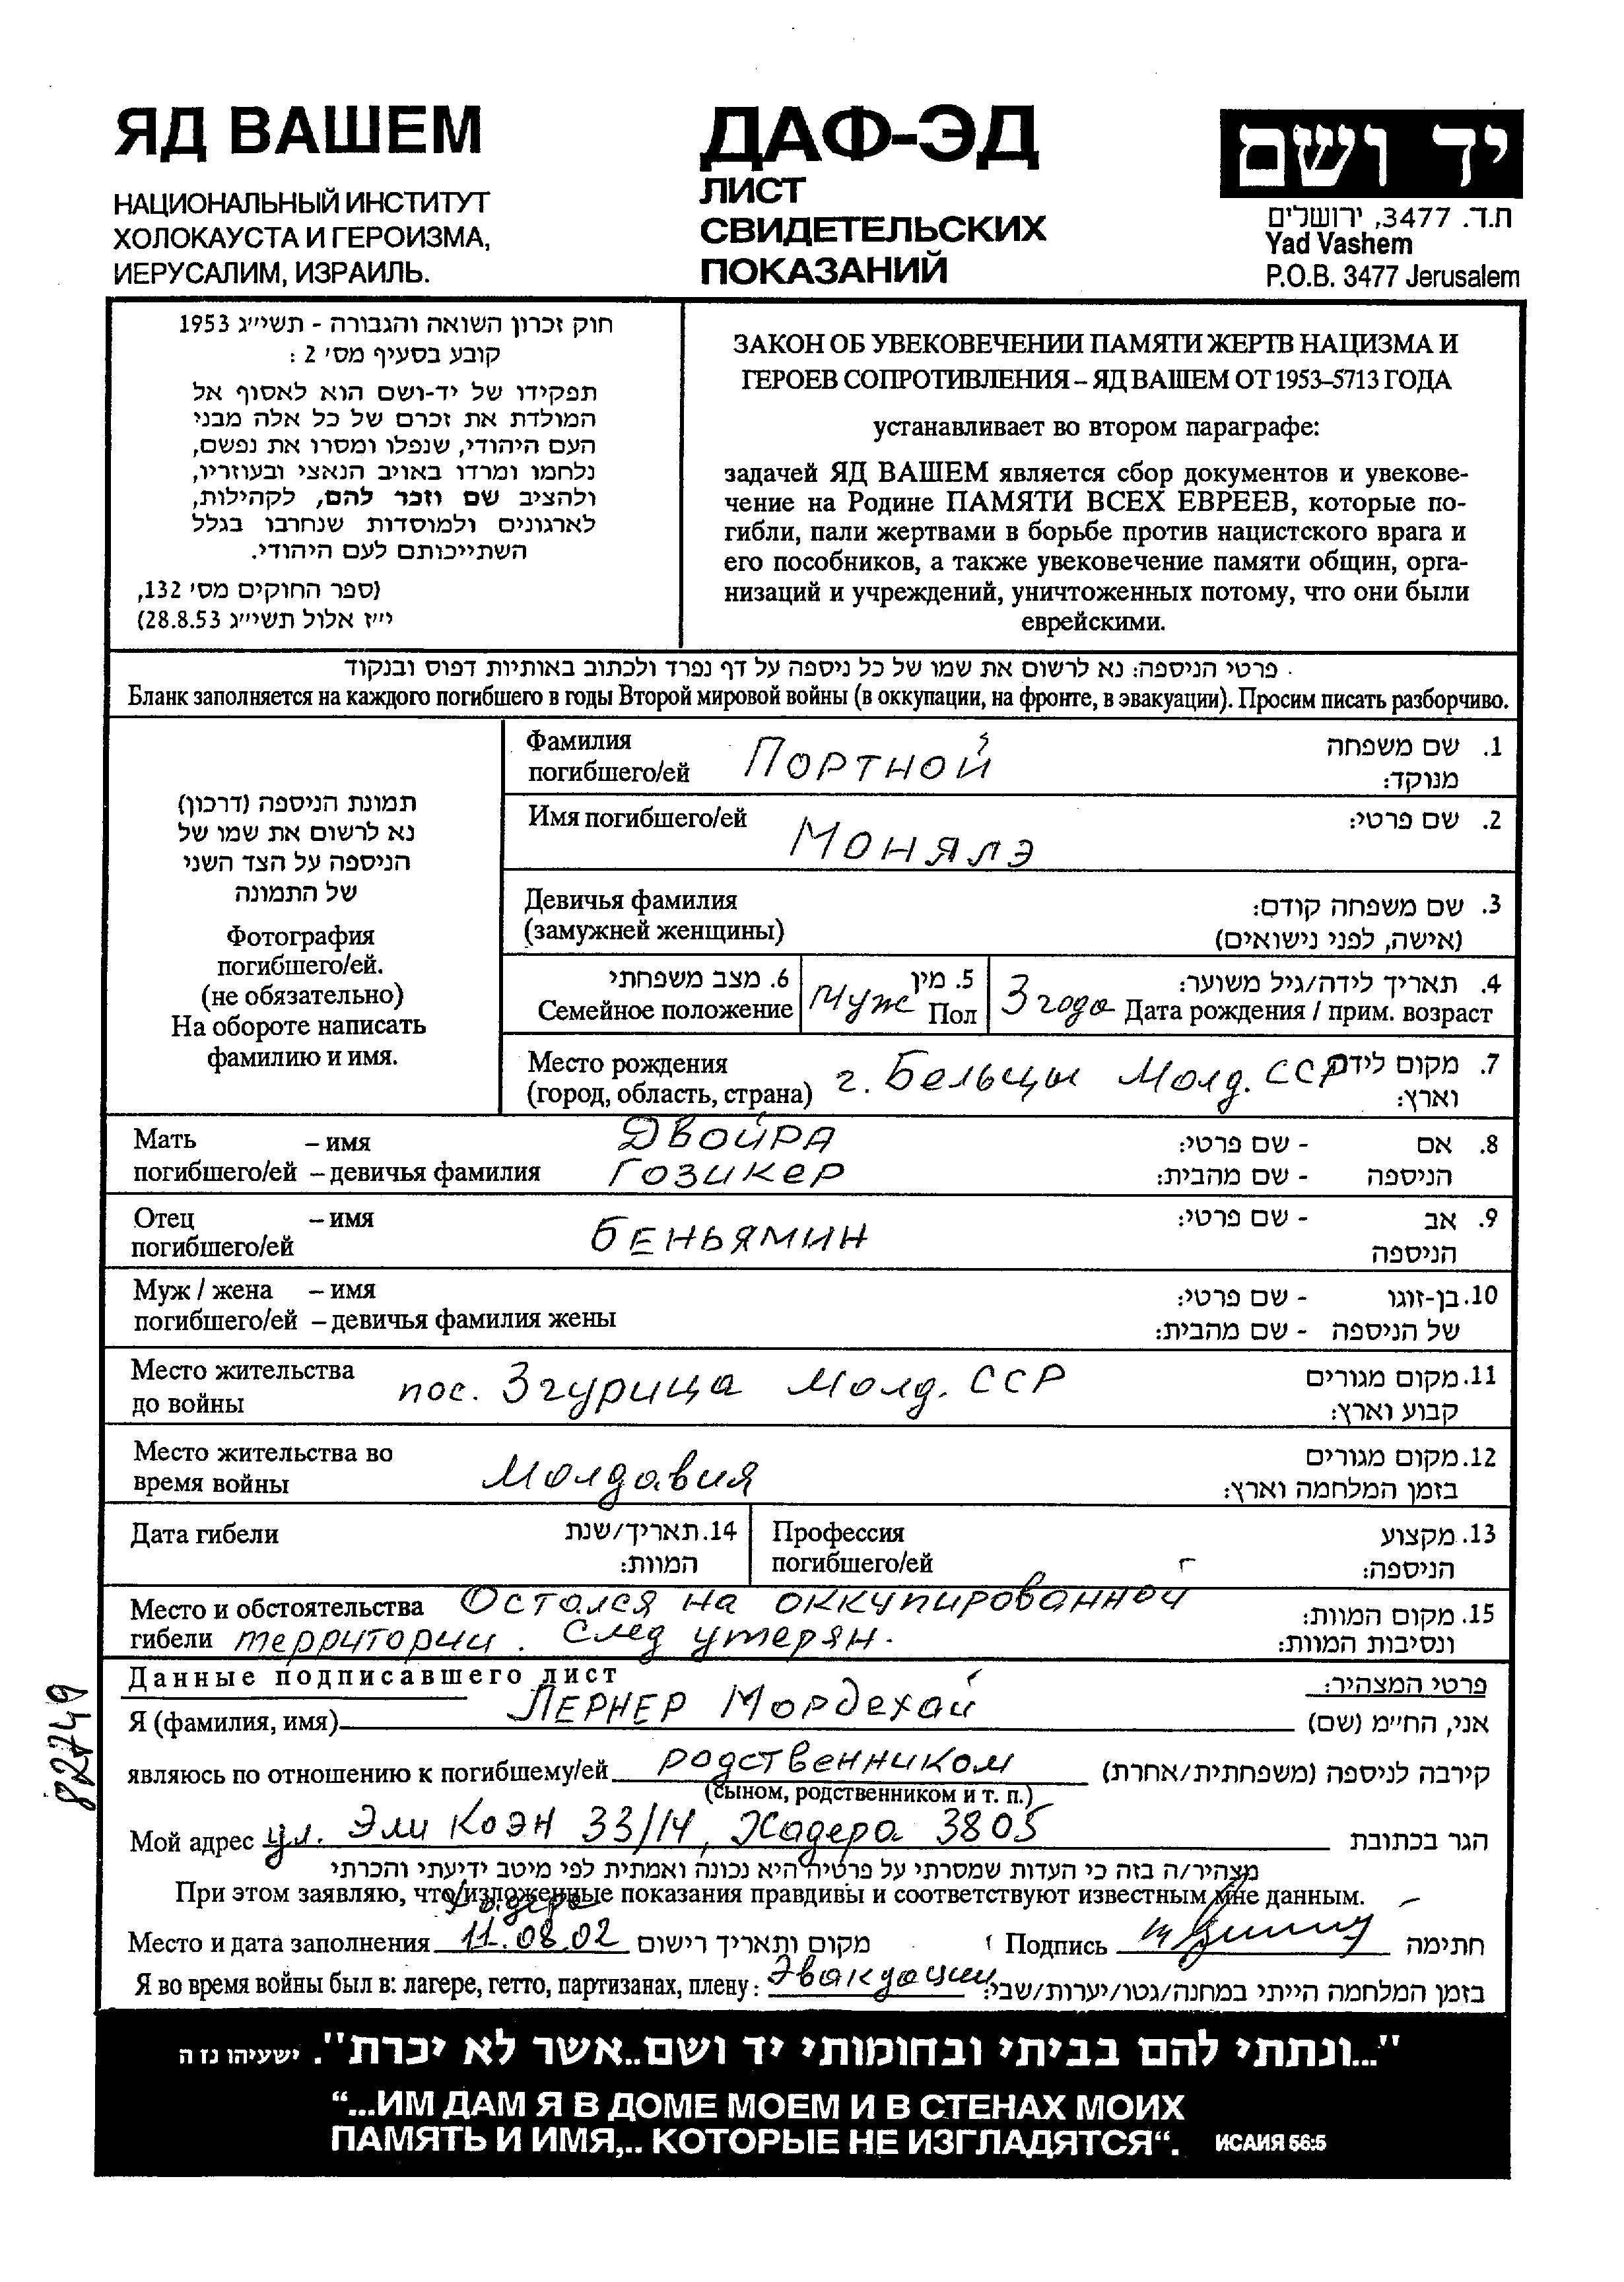 ЯД ВАШЕМ
НАЦИОНАЛЬНЫЙ ИНСТИТУТ
ХОЛОКАУСТА И ГЕРОИЗМА,
ИЕРУСАЛИМ, ИЗРАИЛЬ.
ДАФ-ЭД
ЛИСТ
СВИДЕТЕЛЬСКИХ
ПОКАЗАНИЙ
יד ושם
ת.ד. 3477, ירושלים
Yad Vashem
P.O.B. 3477 Jerusalem
חוק זכרון השואה והגבורה - תשי״ג 1953
קובע בסעיף מס׳ 2 :
תפקידו של יד-ושם הוא לאסוף אל
המולדת את זכרם של כל אלה מבני
העם היהודי, שנפלו ומסרו את נפשם,
נלחמו ומרדו באויב הנאצי ובעוזריו,
ולהציב שם וזכר להם, לקהילות,
לארגונים ולמוסדות שנחרבו בגלל
השתייכותם לעם היהודי.
(ספר החוקים מס׳ 132,
י״ז אלול תשי״ג 28.8.53)
ЗАКОН ОБ УВЕКОВЕЧЕНИИ ПАМЯТИ ЖЕРТВ НАЦИЗМА И
ГЕРОЕВ СОПРОТИВЛЕНИЯ – ЯД ВАШЕМ ОТ 1953–5713 ГОДА
устанавливает во втором параграфе:
задачей ЯД ВАШЕМ является сбор документов и увекове-
чение на Родине ПАМЯТИ ВСЕХ ЕВРЕЕВ, которые по-
гибли, пали жертвами в борьбе против нацистского врага и
его пособников, а также увековечение памяти общин, орга-
низаций и учреждений, уничтоженных потому, что они были
еврейскими.
פרטי הניספה: נא לרשום את שמו של כל ניספה על דף נפרד ולכתוב באותיות דפוס ובנקוד
Бланк заполняется на каждого погибшего в годы Второй мировой войны (в оккупации, на фронте, в эвакуации). Просим писать разборчиво.
תמונת הניספה (דרכון)
נא לרשום את שמו של
הניספה על הצד השני
של התמונה
Фотография
погибшего/ей.
(не обязательно)
На обороте написать
фамилию и имя.
Фамилия 1. שם משפחה
погибшего/ей Портной מנוקד:
Имя погибшего/ей Монялэ 2. שם פרטי:
Девичья фамилия 3. שם משפחה קודם:
(замужней женщины) (אישה, לפני נישואים)
6. מצב משפחתי
Семейное положение
5. מין
Муж Пол
4. תאריך לידה/גיל משוער:
3 года Дата рождения / прим. возраст
Место рождения 7. מקום לידה
(город, область, страна) г. Бельцы Молд. ССР וארץ:
Мать – имя Двойра 8. אם - שם פרטי:
погибшего/ей – девичья фамилия Гозикер הניספה - שם מהבית:
Отец – имя 9. אב - שם פרטי:
погибшего/ей Беньямин הניספה
Муж / жена – имя 10. בן-זוגו - שם פרטי:
погибшего/ей – девичья фамилия жены של הניספה - שם מהבית:
Место жительства 11. מקום מגורים
до войны пос. Згурица Молд. ССР קבוע וארץ:
Место жительства во 12. מקום מגורים
время войны Молдавия בזמן המלחמה וארץ:
Дата гибели 14. תאריך/שנת
המוות:
Профессия 13. מקצוע
погибшего/ей הניספה:
Место и обстоятельства Остался на оккупированной 15. מקום המוות:
гибели территории. След утерян. ונסיבות המוות:
Данные подписавшего лист פרטי המצהיר:
Я (фамилия, имя) Лернер Мордехай אני, הח״מ (שם)
являюсь по отношению к погибшему/ей родственником קירבה לניספה (משפחתית/אחרת)
(сыном, родственником и т. п.)
Мой адрес ул. Эли Коэн 33/14, Хадера 3805 הגר בכתובת
מצהיר/ה בזה כי העדות שמסרתי על פרטיה היא נכונה ואמתית לפי מיטב ידיעתי והכרתי
При этом заявляю, что изложенные показания правдивы и соответствуют известным мне данным.
Хадера
Место и дата заполнения 11.08.02 מקום ותאריך רישום Подпись חתימה
Я во время войны был в: лагере, гетто, партизанах, плену: Эвакуации בזמן המלחמה הייתי במחנה/גטו/יערות/שבי:
82749
"...ונתתי להם בביתי ובחומותי יד ושם..אשר לא יכרת". ישעיהו נז ה
“...ИМ ДАМ Я В ДОМЕ МОЕМ И В СТЕНАХ МОИХ
ПАМЯТЬ И ИМЯ,.. КОТОРЫЕ НЕ ИЗГЛАДЯТСЯ“. ИСАИЯ 56:5